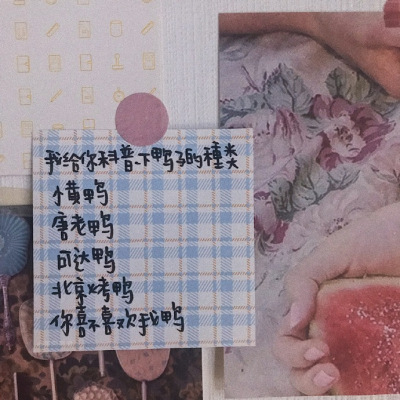 我给你科普一下鸭子的種类
小黄鸭
唐老鸭
可达鸭
北京烤鸭
你喜不喜欢我鸭